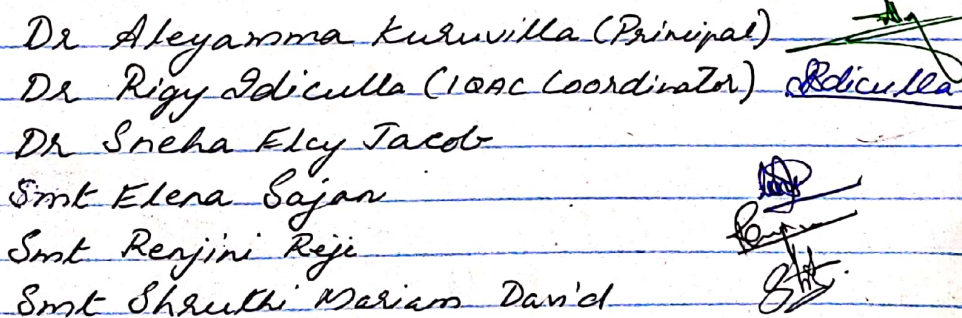 Dr Aleyamma Kuruvilla (Principal)
Dr Rigy Idiculla (IQAC Coordinator) RIdiculla
Dr Sneha Elcy Jacob
Smt Elena Sajan
Smt Renjini Reji
Smt Shruthi Mariam David